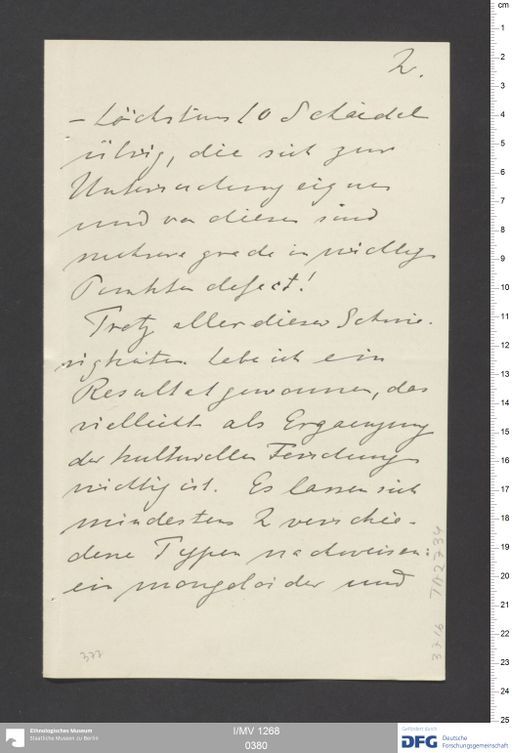 2.
– höchstens 10 Schädel
übrig, die sich zur
Untersuchung eignen
und von diesen sind
mehrere grade in wichtig.
Punkten defect!
Trotz aller dieser Schwie-
rigkeiten habe ich ein
Resultat gewonnen, das
vielleicht als Ergaenzung
der kulturellen Forschung
wichtig ist. Es lassen sich
mindestens 2 verschie-
dene Typen nachweisen:
ein mongoloider und
377
3716 TA2734
cm
1
2
3
4
5
6
7
8
9
10
11
12
13
14
15
16
17
18
19
20
21
22
23
24
25
Ethnologisches Museum
Staatliche Museen zu Berlin
I/MV 1268
0380
Gefördert durch
DFG Deutsche
Forschungsgemeinschaft